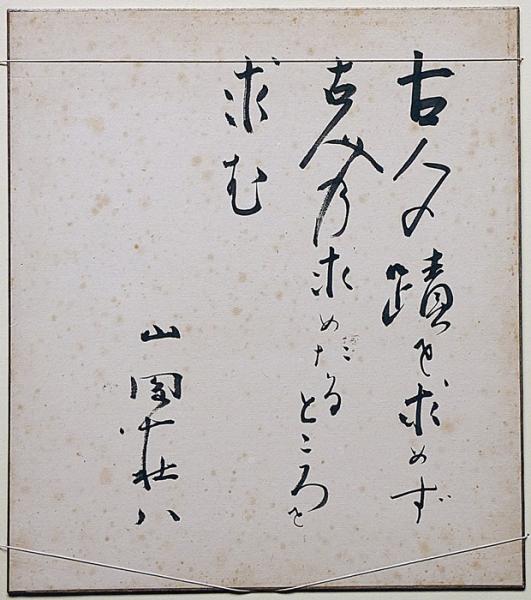 古人の蹟を求めず
古人乃求めたるところを
求む
山岡荘八